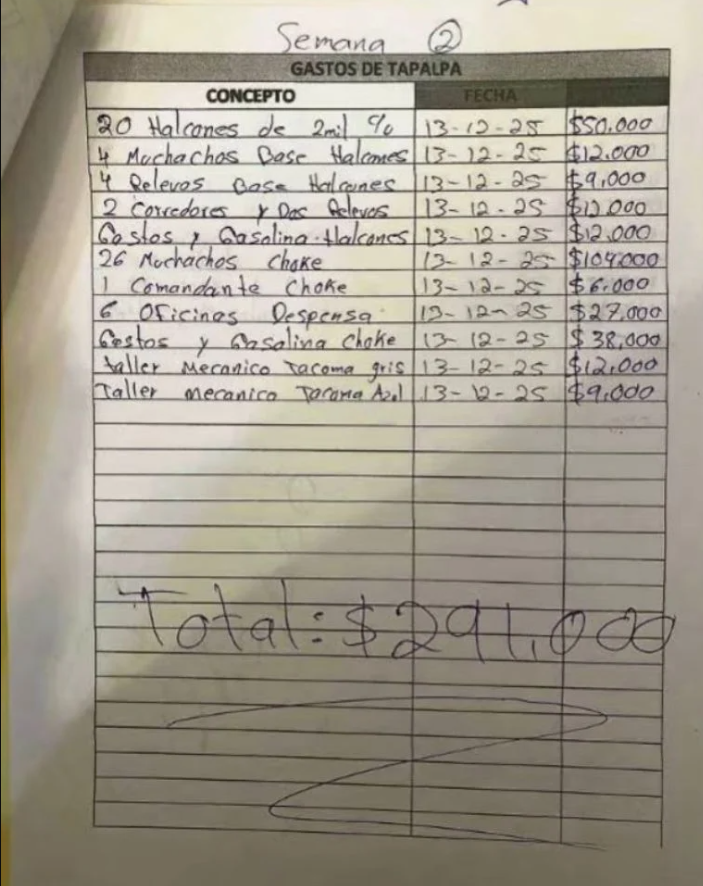 Semana 2
GASTOS DE TAPALPA
CONCEPTO FECHA
20 Halcones de 2mil % 13-12-25 $50.000
4 Muchachos Base Halcones 13-12-25 $12.000
4 Relevos Base Halcones 13-12-25 $9,000
2 Corredores y Dos Relevos 13-12-25 $12.000
Gastos y Gasolina Halcones 13-12-25 $12.000
26 Muchachos Choke 13-12-25 $104.000
1 Comandante Choke 13-12-25 $6.000
6 Oficinas Despensa 13-12-25 $27.000
Gastos y Gasolina Choke 13-12-25 $38,000
taller Mecanico Tacoma gris 13-12-25 $12,000
Taller mecanico Tacoma Azul 13-12-25 $9,000
Total: $291,000